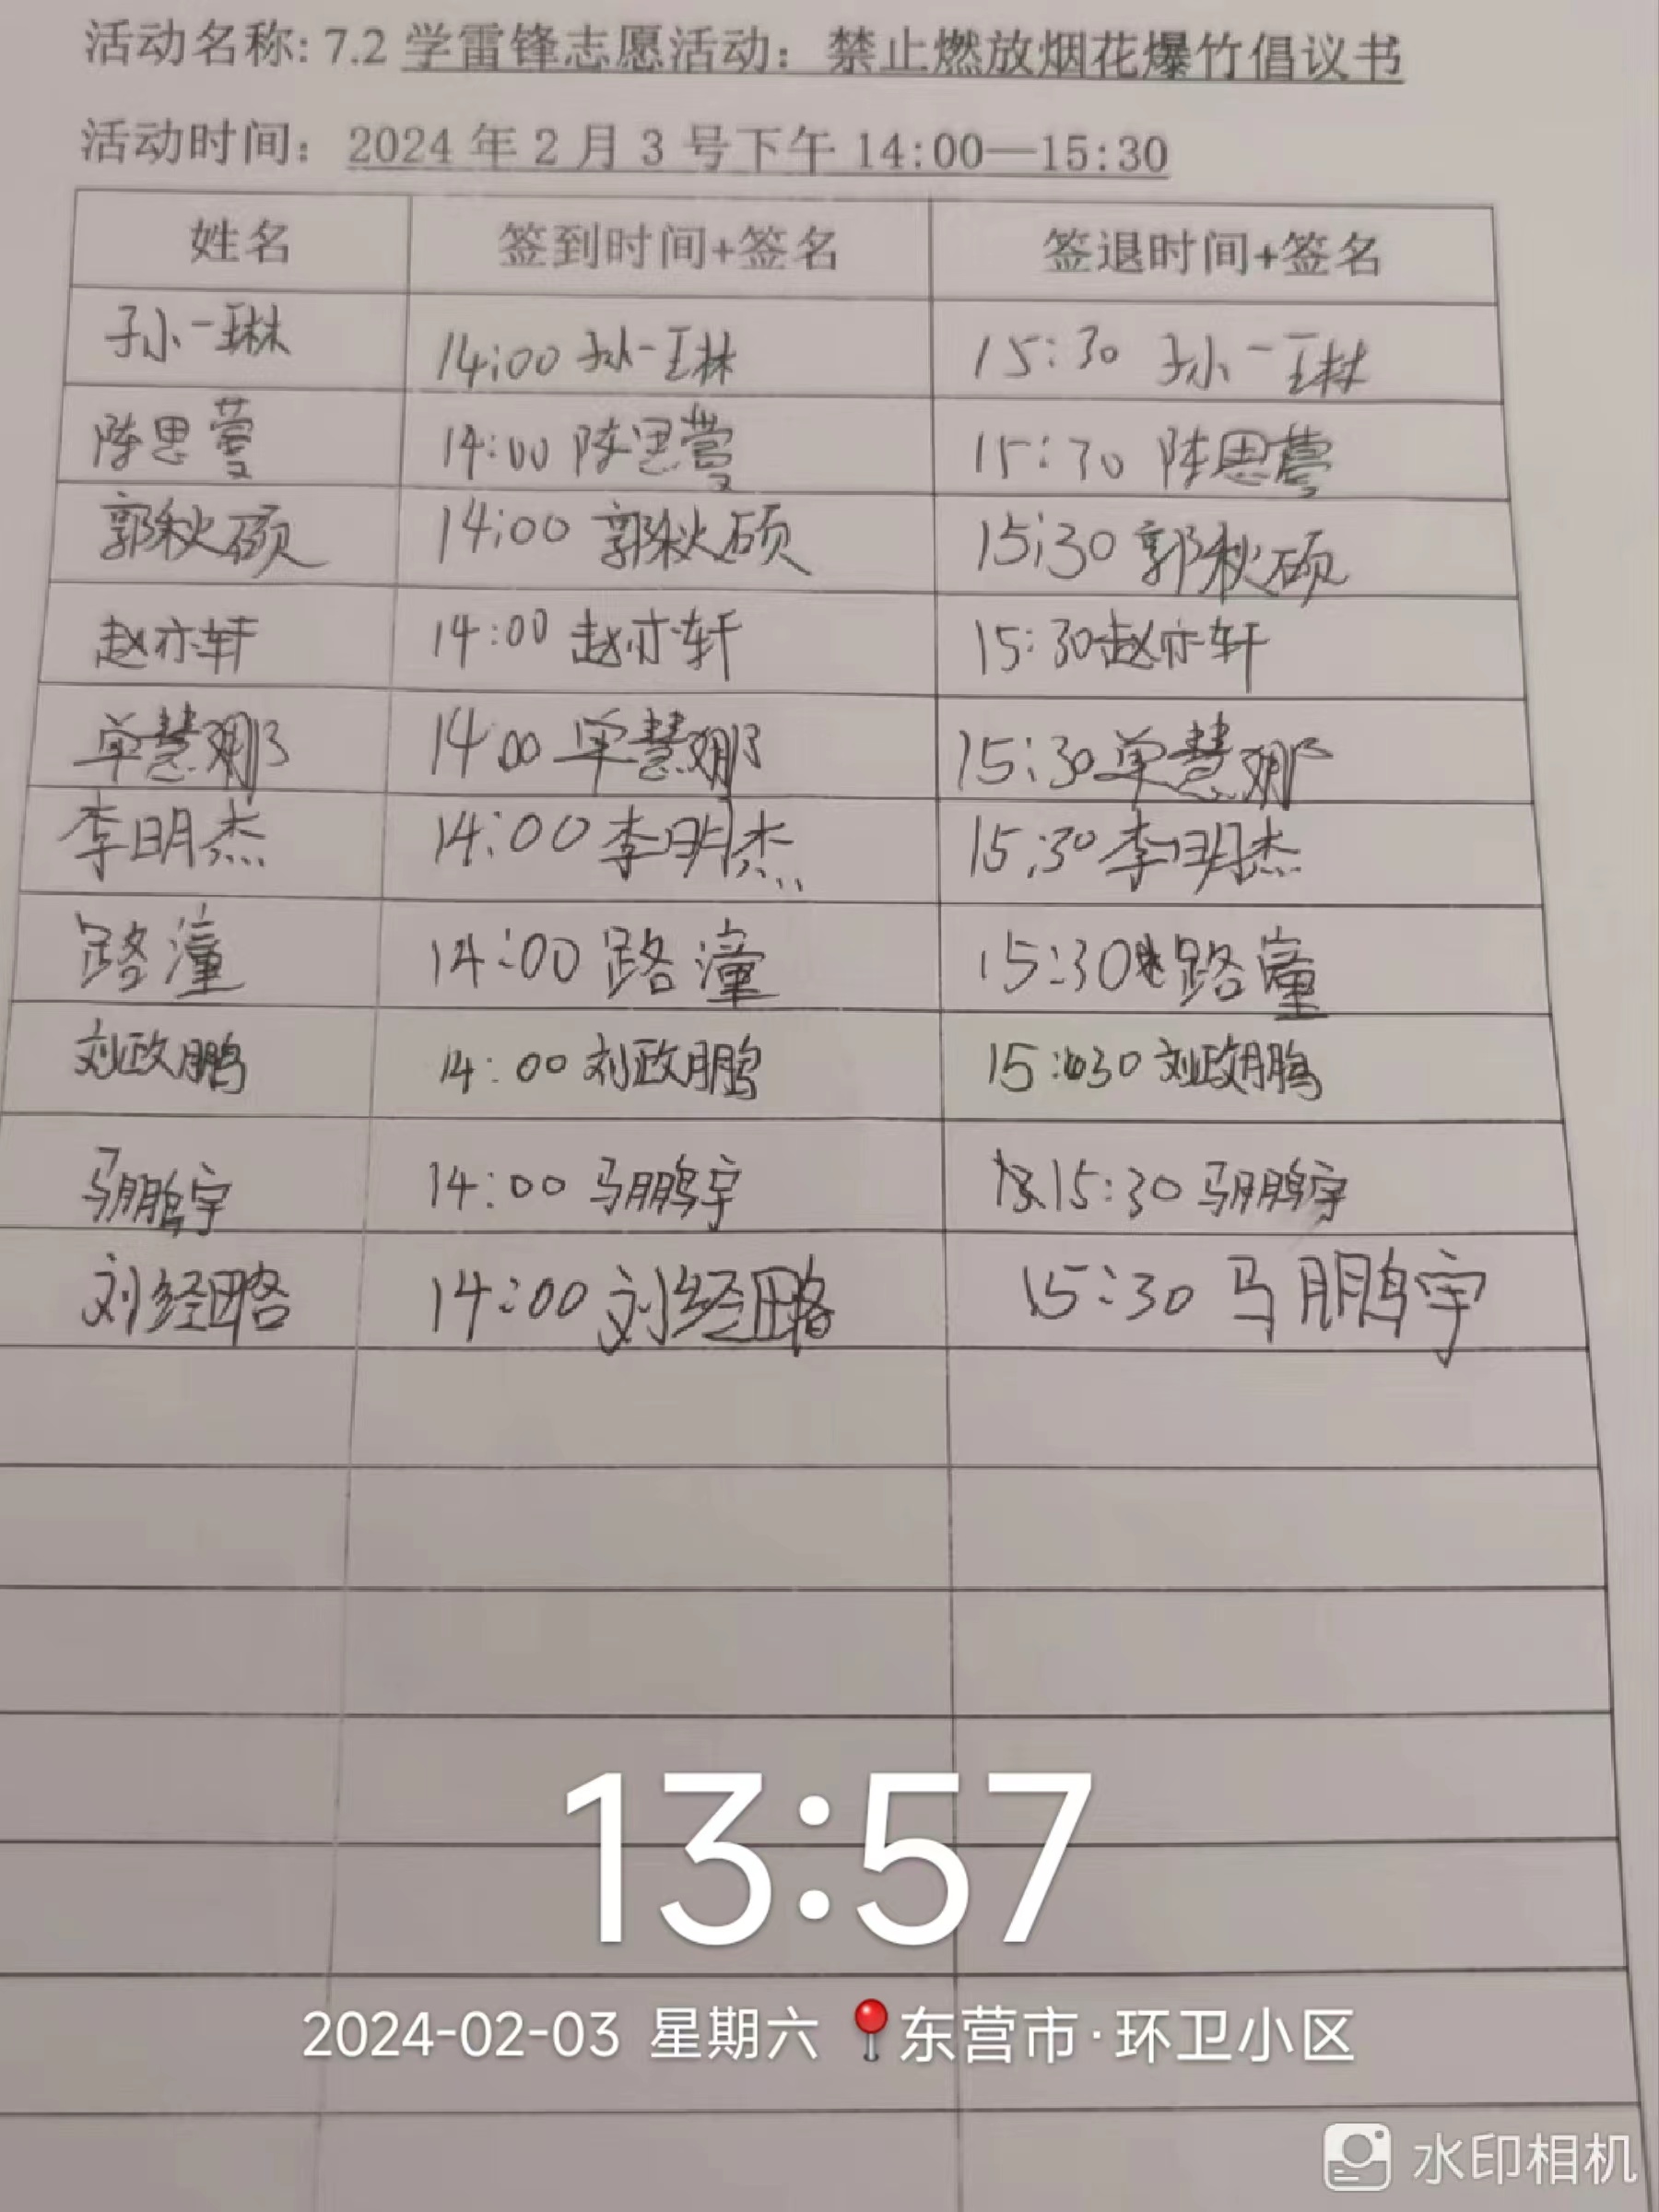 活动名称: 7.2 学雷锋志愿活动：禁止燃放烟花爆竹倡议书
活动时间：2024 年 2 月 3 号下午 14:00—15:30
姓名 签到时间+签名 签退时间+签名
孙一琳 14:00 孙一琳 15:30 孙一琳
陈思蔓 14:00 陈思蔓 15:30 陈思蔓
郭秋硕 14:00 郭秋硕 15:30 郭秋硕
赵亦轩 14:00 赵亦轩 15:30 赵亦轩
单慧娜 14:00 单慧娜 15:30 单慧娜
李明杰 14:00 李明杰 15:30 李明杰
路潼 14:00 路潼 15:30 路潼
刘政鹏 14:00 刘政鹏 15:30 刘政鹏
马鹏宇 14:00 马鹏宇 15:30 马鹏宇
刘经略 14:00 刘经略 15:30 马鹏宇
13:57
2024-02-03 星期六 东营市·环卫小区
水印相机